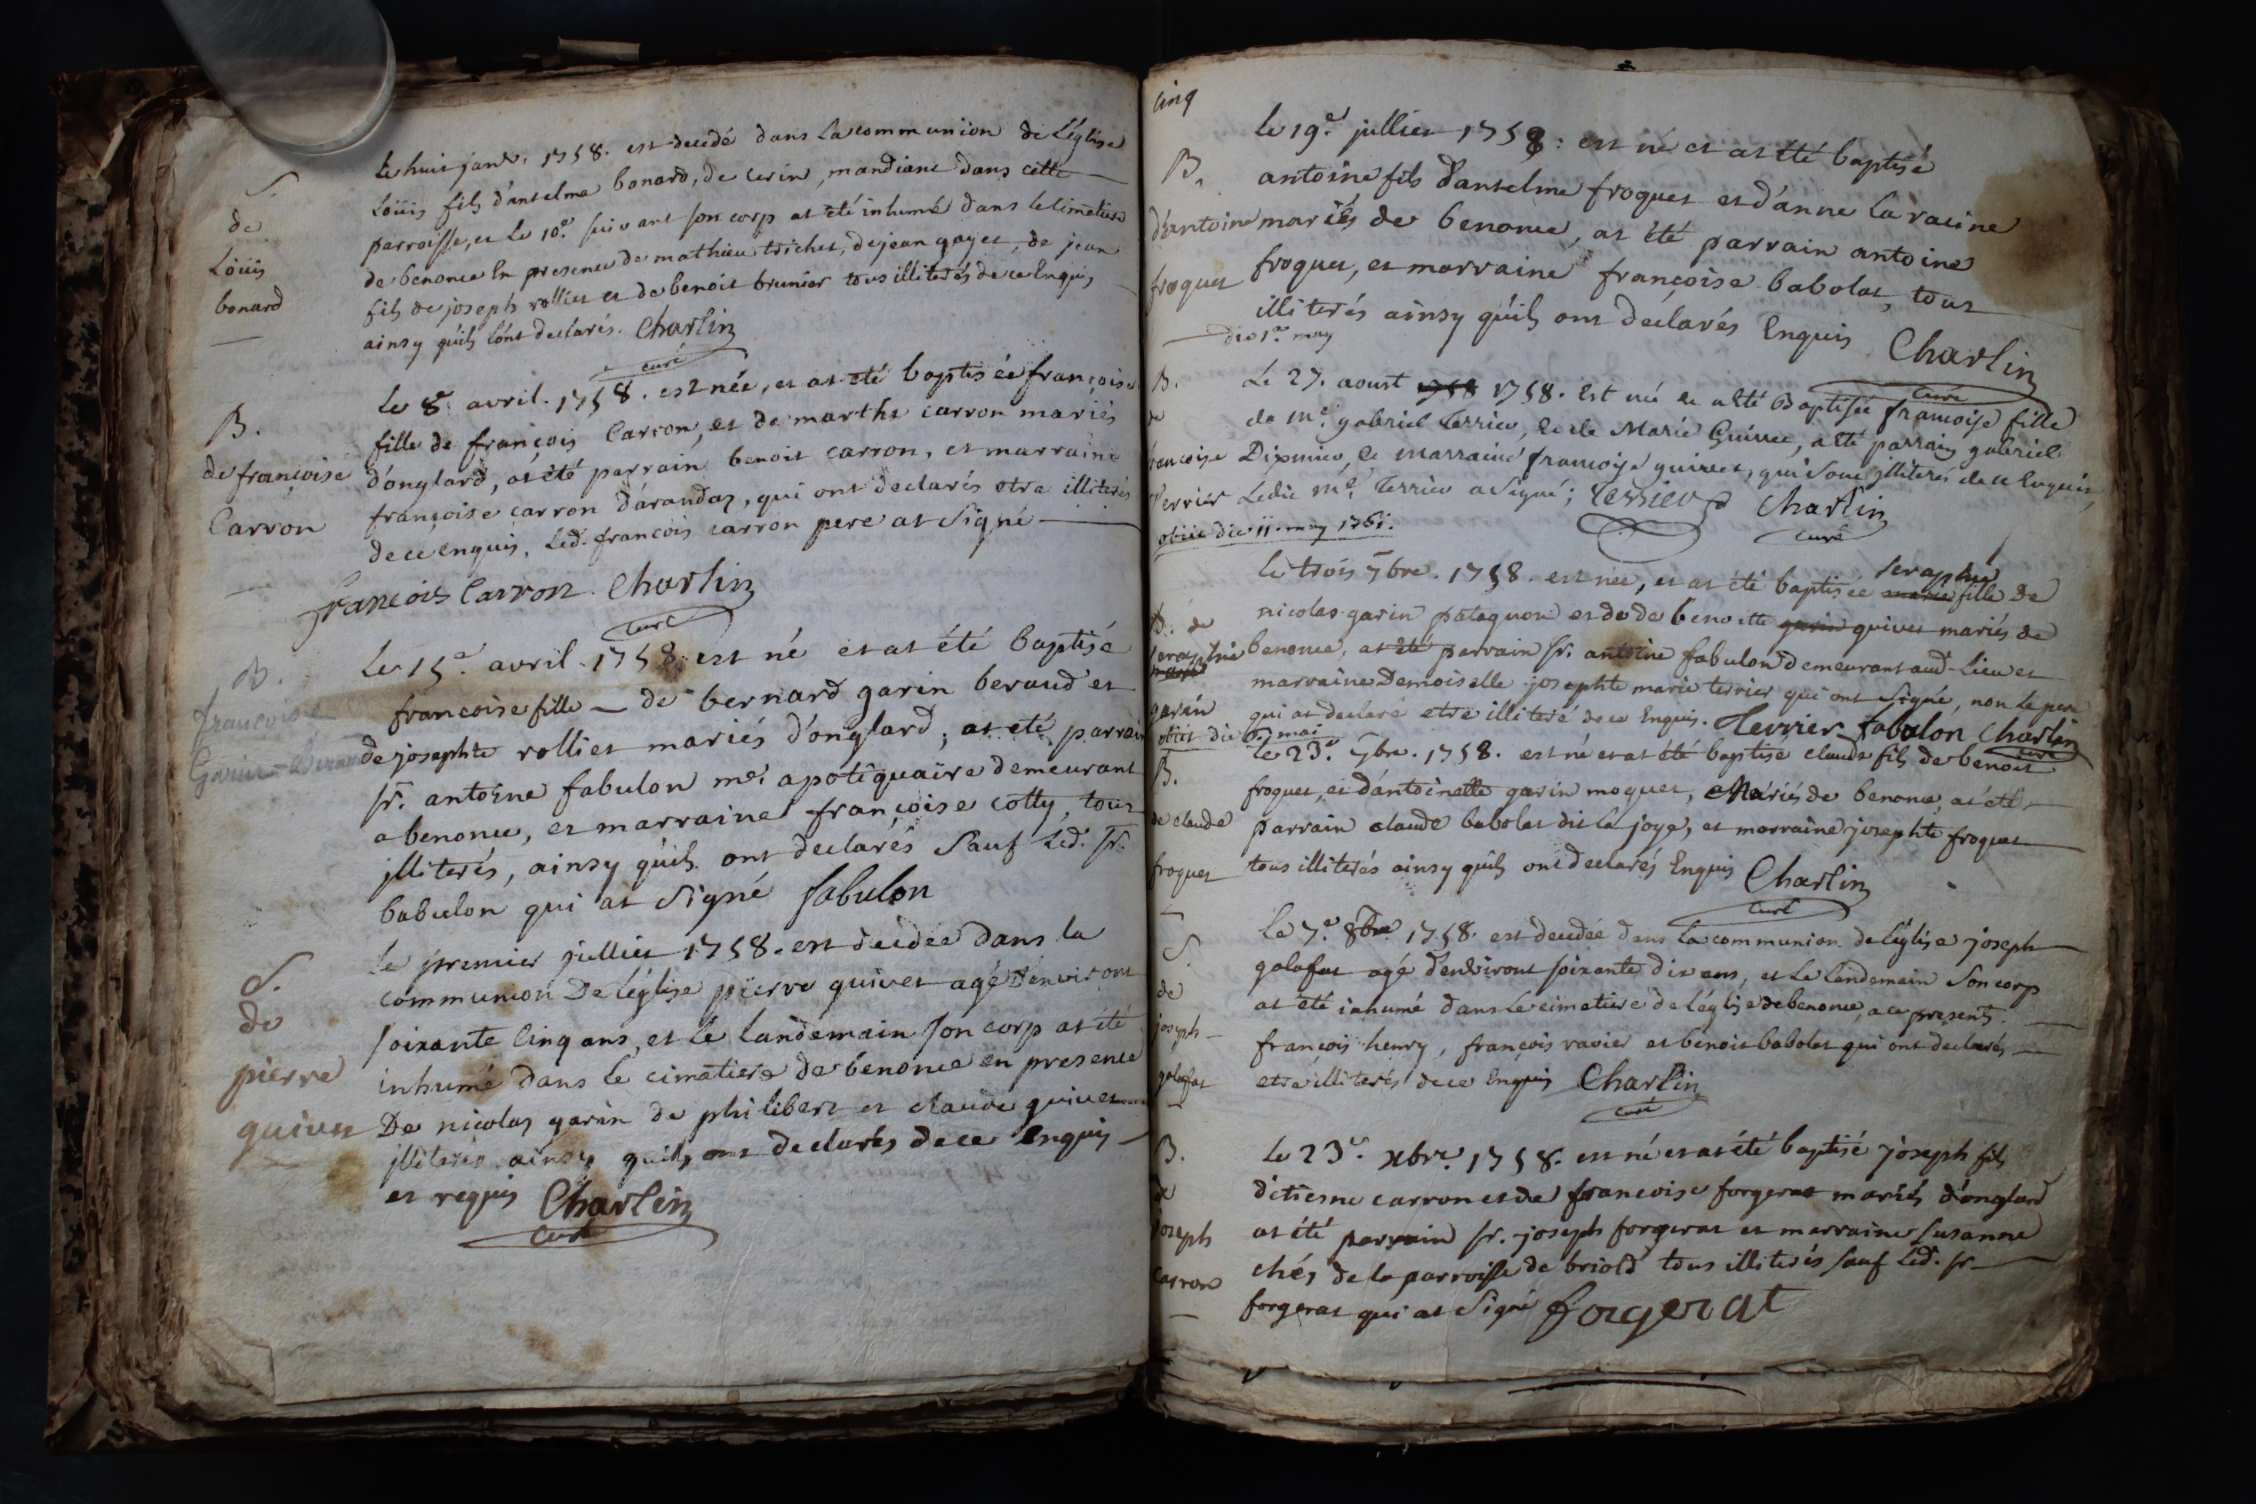 S.
de
Loüis
bonard
le huit janv. 1758. est decedé dans la communion de L'église
Loüis fils d'anselme bonard, de cerin, mandiant dans cette
parroisse, et le 10e. suivant son corp at été inhumé dans le cimetiere
de benonce En presence de mathieu trichet, de jean gayet, de jean
fils de joseph rollier et de benoit brunier tous illiterés de ce Enquis
ainsy qu'ils l'ont declarés. Charlin
curé
B.
de françoise
Carron
le 8e. avril. 1758. est née, et at été baptisée françoise
fille de françois Carron, et de marthe carron mariés
d'onglard, at été parrain benoit carron, et marraine
françoise carron d'arandas, qui ont declarés etre illiterés
de ce enquis, Led. francois carron pere at Signé
francois Carron. Charlin
curé
B.
francoise
Garin-Beraud
le 15e. avril. 1758. est né et at été baptisé
francoise fille de bernard garin beraud et
de josephte rollier mariés d'onglard; at eté parrain
sr. antoine fabulon me. apotiquaire demeurant
a benonce, et marraine françoise cotty, tous
illiterés, ainsy qu'ils ont declarés Sauf Led. sr.
babulon qui at Signé fabulon
S.
de
pierre
quivet
le premier jullier 1758. est decedée dans la
communion De L'église pierre quivet agé D'environt
soixante Cinq ans, et le landemain son corp at été
inhumé dans le cimatiere de bénonce en presence
De nicolas garin de philibert et claude quivet
illiterés ainsy quils ont declarés de ce enquis
et requis Charlin
curé
cinq
B.
d'antoine
froquet
le 19e. jullier 1758: est né et at été baptisé
antoine fils d'anselme froquet et d'anne la racine
mariés de benonce, at été parrain antoine
froquet, et marraine françoise babolat, tous
illiterés ainsy qu'ils ont declarés Enquis Charlin
curé
die 1a. may
B.
de
francoise
Terrier
Le 27. aoust 1758 1758. Est né et a été Baptisée francoise fille
de me. gabriel Terrier, et de Marie Guivet, a été parrain gabriel
et marraine francoise quivet, qui sont illiterés de ce Enquis,
Ledit me. Terrier a Signé; Terrier Charlin
curé
obiit die 11. may 1761.
B. de
seraphie
marie
garin
le trois 7bre. 1758. est née, et at été baptisée seraphie marie fille de
nicolas garin pataquon et de de benoitte garin quivet mariés de
benonce, at été parrain sr. antoine fabulon demeurant aud. Lieu et
marraine Demoiselle josephte marie terrier qui ont signée, non le pere
qui at declaré etre illiteré de ce Enquis. Terrier fabulon Charlin
curé
obiit die 6. mai
B.
de claude
froquet
le 23e. 7bre. 1758. est né et at été baptisé claude fils de benoit
froquet, et d'antoinette garin moquet, Mariés de benonce, at été
parrain claude babolat dit la joye, et marraine josephte froquet
tous illiterés ainsy qu'ils ont declarés Enquis Charlin
curé
S.
de
joseph
galafat
Le 7e. 8bre. 1758. est decedée dans la communion de L'église joseph
galafat agé d'environt soixante dix ans, et le landemain Son corp
at eté inhumé dans le cimetiere de L'église de benonce, a ce presents
francois henry, françois ravier et benoit babolat qui ont declarés
etre illiterés de ce Enquis Charlin
curé
B.
de
joseph
Carron
Le 23e. xbre. 1758. est né et at été baptisé joseph fils
d'etienne carron et de francoise forgerat mariés d'onglard
at été parrain sr. joseph forgerat et marraine susanne
chés de la parroisse de briord tous illiterés sauf Led. sr
forgerat qui at Signé forgerat